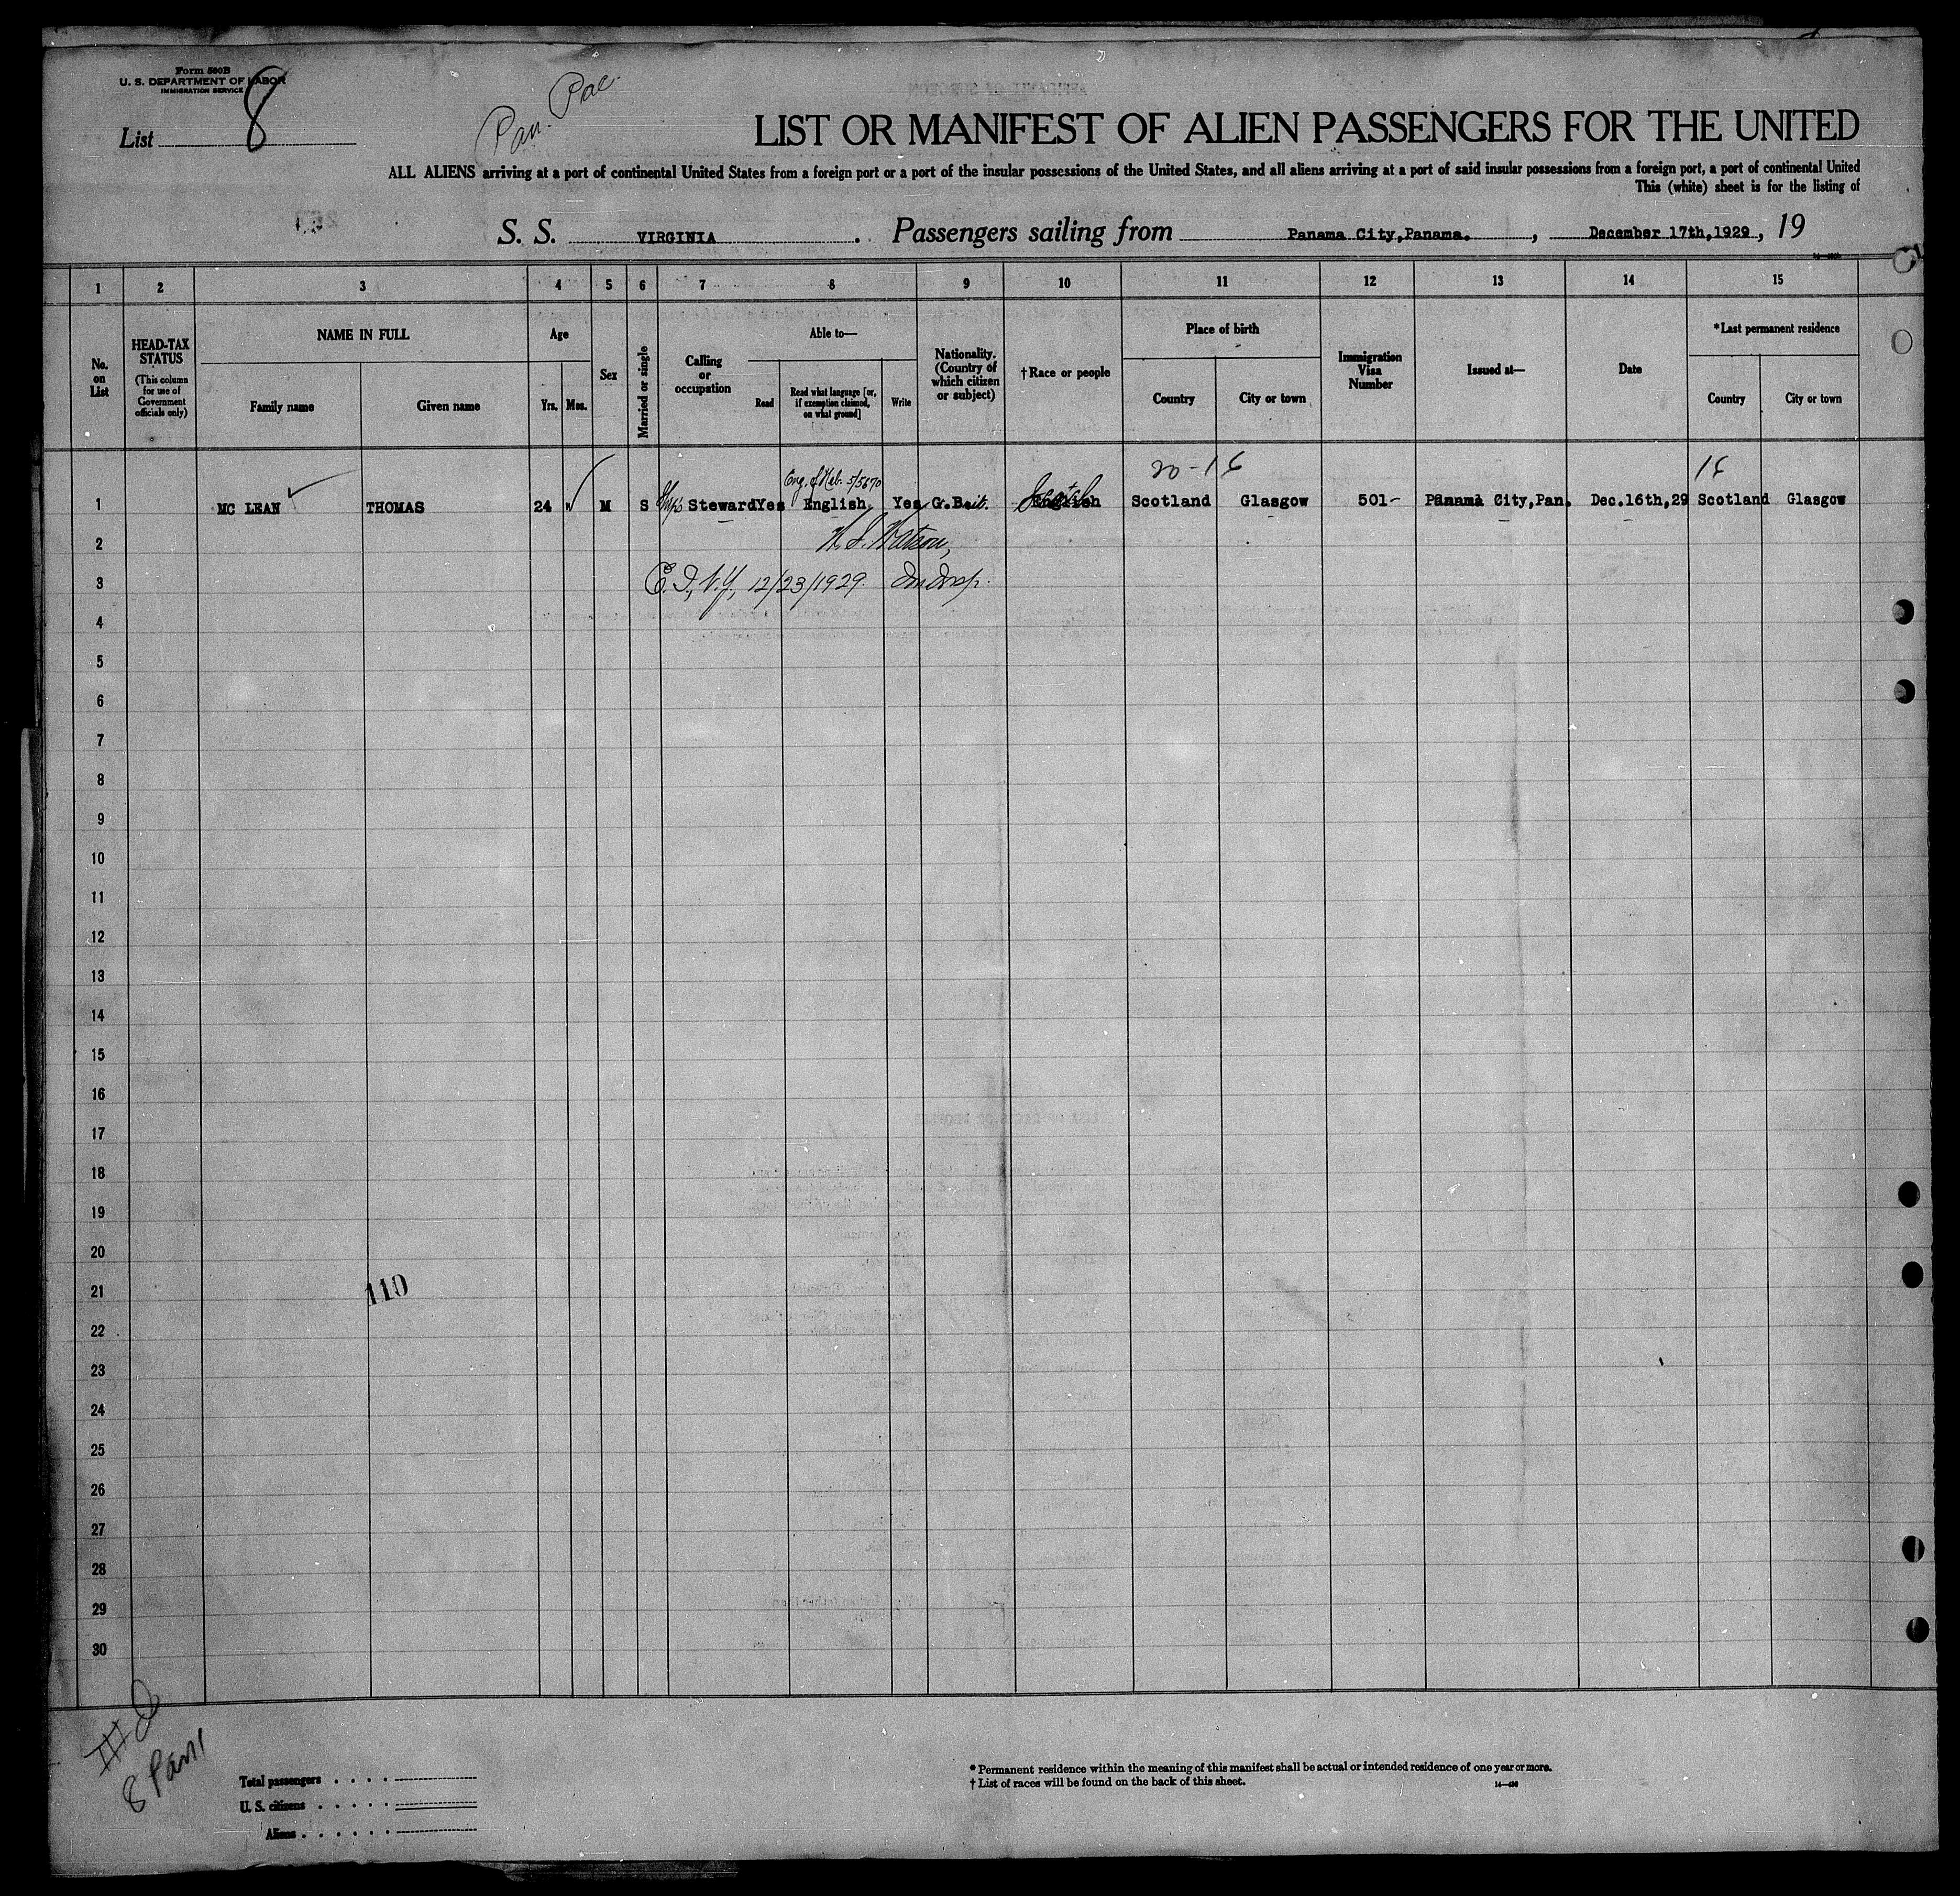 Form 500B
U. S. DEPARTMENT OF LABOR
IMMIGRATION SERVICE
List 8
Pan. Pac.
LIST OR MANIFEST OF ALIEN PASSENGERS FOR THE UNITED
ALL ALIENS arriving at a port of continental United States from a foreign port or a port of the insular possessions of the United States, and all aliens arriving at a port of said insular possessions from a foreign port, a port of continental United
This (white) sheet is for the listing of
S. S. VIRGINIA. Passengers sailing from Panama City,Panama. , December 17th,1929 , 19
1 2 3 4 5 6 7 8 9 10 11 12 13 14 15
No. on List
HEAD-TAX STATUS
(This column for use of Government officials only)
NAME IN FULL
Family name Given name
Age
Yrs. Mos.
Sex
Married or single
Calling or occupation
Able to—
Read
Read what language [or, if exemption claimed, on what ground]
Write
Nationality. (Country of which citizen or subject)
†Race or people
Place of birth
Country City or town
Immigration Visa Number
Issued at—
Date
*Last permanent residence
Country City or town
20-16 16
1 MC LEAN THOMAS 24 M S Steward Yes English Yes G.Brit. Scotch English Scotland Glasgow 501- Panama City,Pan. Dec.16th,29 Scotland Glasgow
2 Watson,
3 12/23/1929.
4
5
6
7
8
9
10
11
12
13
14
15
16
17
18
19
20
21 110
22
23
24
25
26
27
28
29
30
#2
8 Pan1
Total passengers
U. S. citizens
Aliens
* Permanent residence within the meaning of this manifest shall be actual or intended residence of one year or more.
† List of races will be found on the back of this sheet.